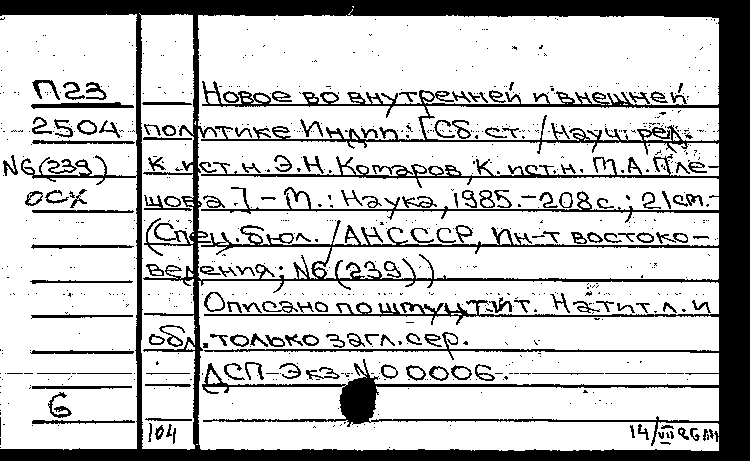 П23 Новое во внутренней и внешней
2504 политике Индии: [Сб. ст. / Науч. ред.
N6(239) к. ист. н. Э.Н. Комаров, к. ист. н. Т.А. Пле-
ОСХ шова]. - М.: Наука, 1985. - 208 с.; 21 см. -
(Спец. бюл. / АН СССР, Ин-т востоко-
ведения; N6(239)).
Описано по шмуцтит. На тит. л. и
обл. только загл. сер.
ДСП Экз. N 00006.
6
104 14/VII 86